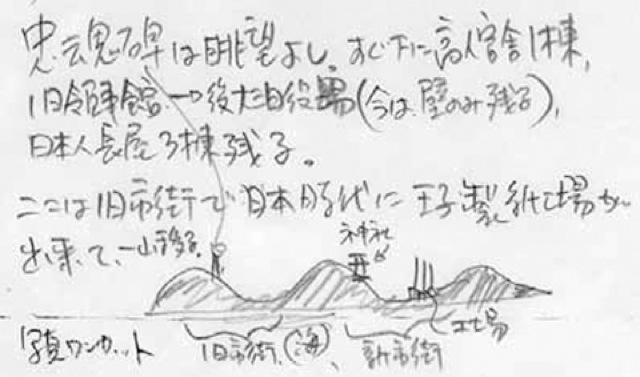 忠魂碑は眺望よし。すぐ下に官舎1棟,
旧領事館→後大泊役場(今は壁のみ残る),
日本人長屋3棟残る。
ここは旧市街で日本時代に王子製紙工場が
出来て、一山移る。
神社
工場
写真ワンカット 旧市街、(海)、新市街